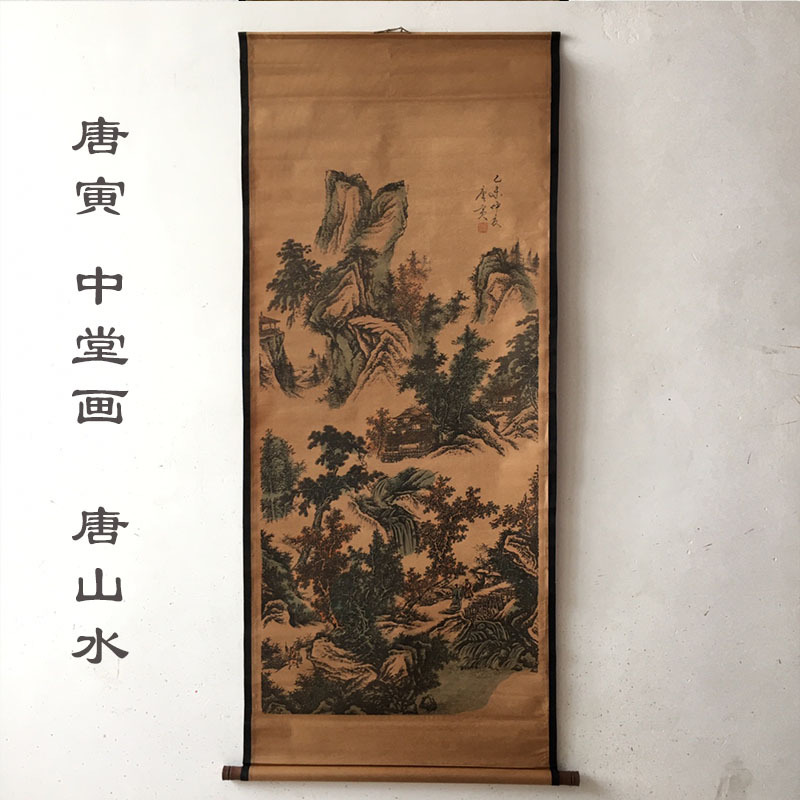 唐寅 中堂画 唐山水
乙未仲夏
唐寅